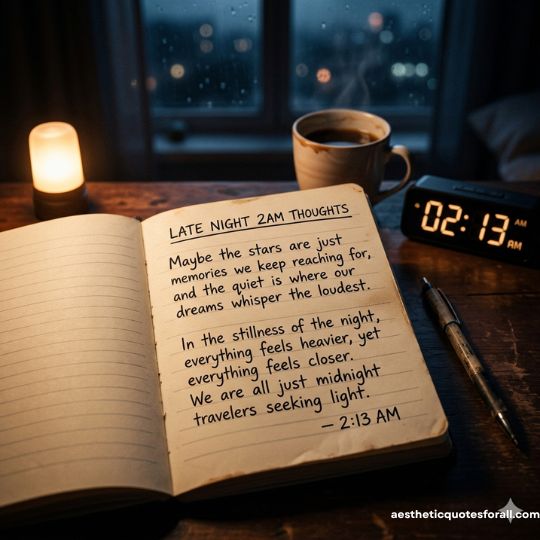 LATE NIGHT 2AM THOUGHTS
Maybe the stars are just
memories we keep reaching for,
and the quiet is where our
dreams whisper the loudest.
In the stillness of the night,
everything feels heavier, yet
everything feels closer.
We are all just midnight
travelers seeking light.
— 2:13 AM
02:13 AM
AM
aestheticquotesforall.com